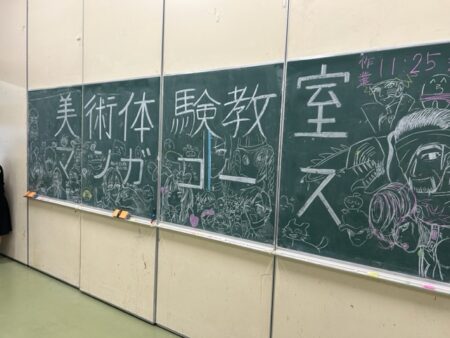 美術体験教室
マンガコース
作業11:25